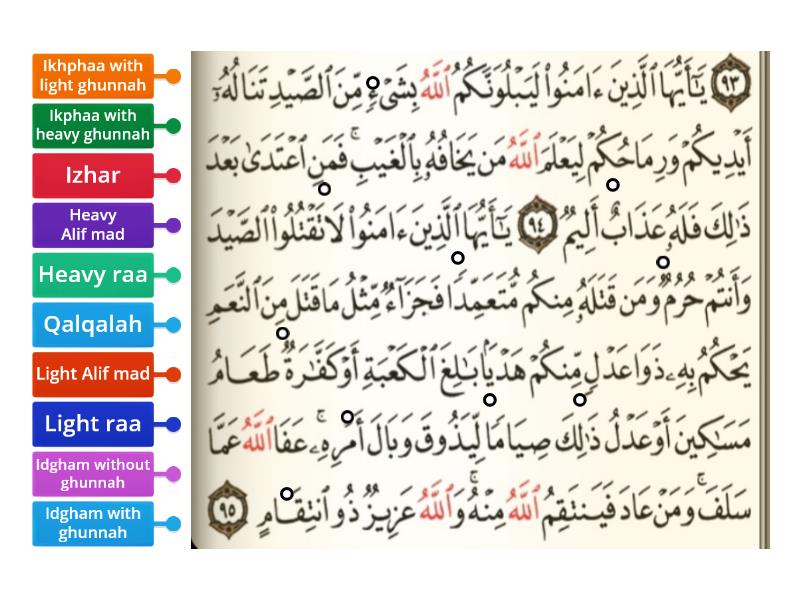 Ikhphaa with
light ghunnah
Ikphaa with
heavy ghunnah
Izhar
Heavy
Alif mad
Heavy raa
Qalqalah
Light Alif mad
Light raa
Idgham without
ghunnah
Idgham with
ghunnah
٩٣ يَٰٓأَيُّهَا ٱلَّذِينَ ءَامَنُوا۟ لَيَبْلُوَنَّكُمُ ٱللَّهُ بِشَىْءٍ مِّنَ ٱلصَّيْدِ تَنَالُهُۥٓ
أَيْدِيكُمْ وَرِمَاحُكُمْ لِيَعْلَمَ ٱللَّهُ مَن يَخَافُهُۥ بِٱلْغَيْبِ ۚ فَمَنِ ٱعْتَدَىٰ بَعْدَ
ذَٰلِكَ فَلَهُۥ عَذَابٌ أَلِيمٌ ٩٤ يَٰٓأَيُّهَا ٱلَّذِينَ ءَامَنُوا۟ لَا تَقْتُلُوا۟ ٱلصَّيْدَ
وَأَنتُمْ حُرُمٌ ۚ وَمَن قَتَلَهُۥ مِنكُم مُّتَعَمِّدًا فَجَزَآءٌ مِّثْلُ مَا قَتَلَ مِنَ ٱلنَّعَمِ
يَحْكُمُ بِهِۦ ذَوَا عَدْلٍ مِّنكُمْ هَدْيًۢا بَٰلِغَ ٱلْكَعْبَةِ أَوْ كَفَّٰرَةٌ طَعَامُ
مَسَٰكِينَ أَوْ عَدْلُ ذَٰلِكَ صِيَامًا لِّيَذُوقَ وَبَالَ أَمْرِهِۦ ۗ عَفَا ٱللَّهُ عَمَّا
سَلَفَ ۚ وَمَنْ عَادَ فَيَنتَقِمُ ٱللَّهُ مِنْهُ ۗ وَٱللَّهُ عَزِيزٌ ذُو ٱنتِقَامٍ ٩٥